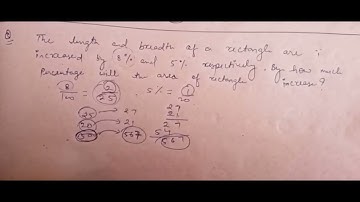 Q The length and breadth of a rectangle are
increased by 8% and 5% respectively. By how much
percentage will the area of rectangle increase?
8/100 = 2/25 5% = 1/20
25 → 27 27
20 → 21 21
500 → 567 27
54
567